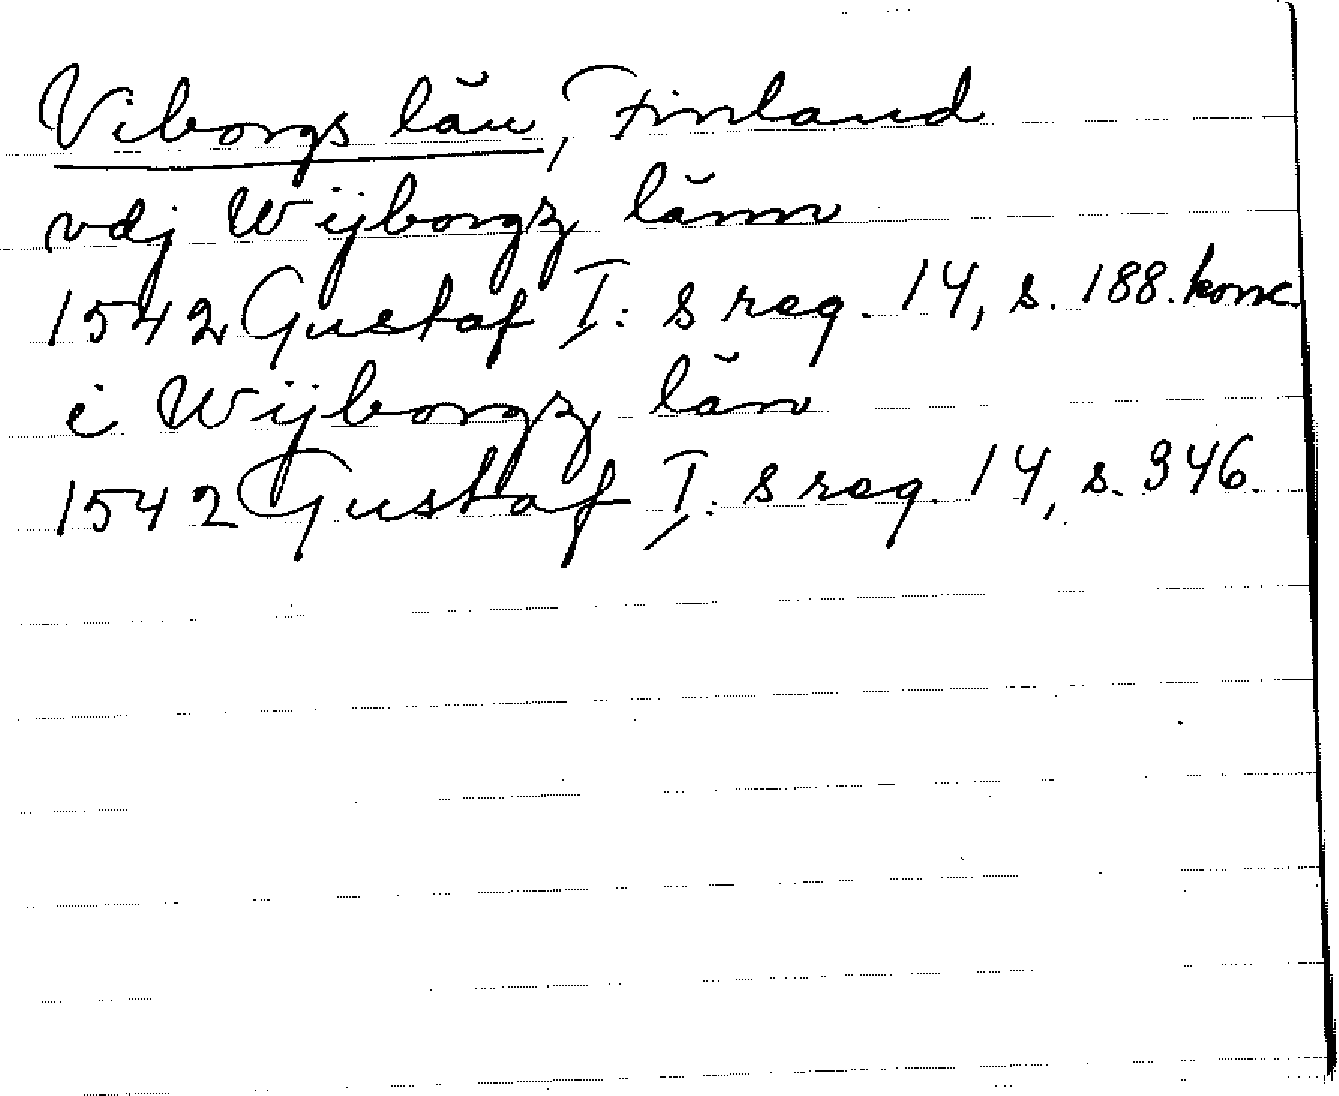 Viborgs län, Finland
vdj Wijborgz länn
1542 Gustaf I: s reg. 14, s. 188. konc.
i Wijborgz län
1542 Gustaf I: s reg. 14, s. 346.